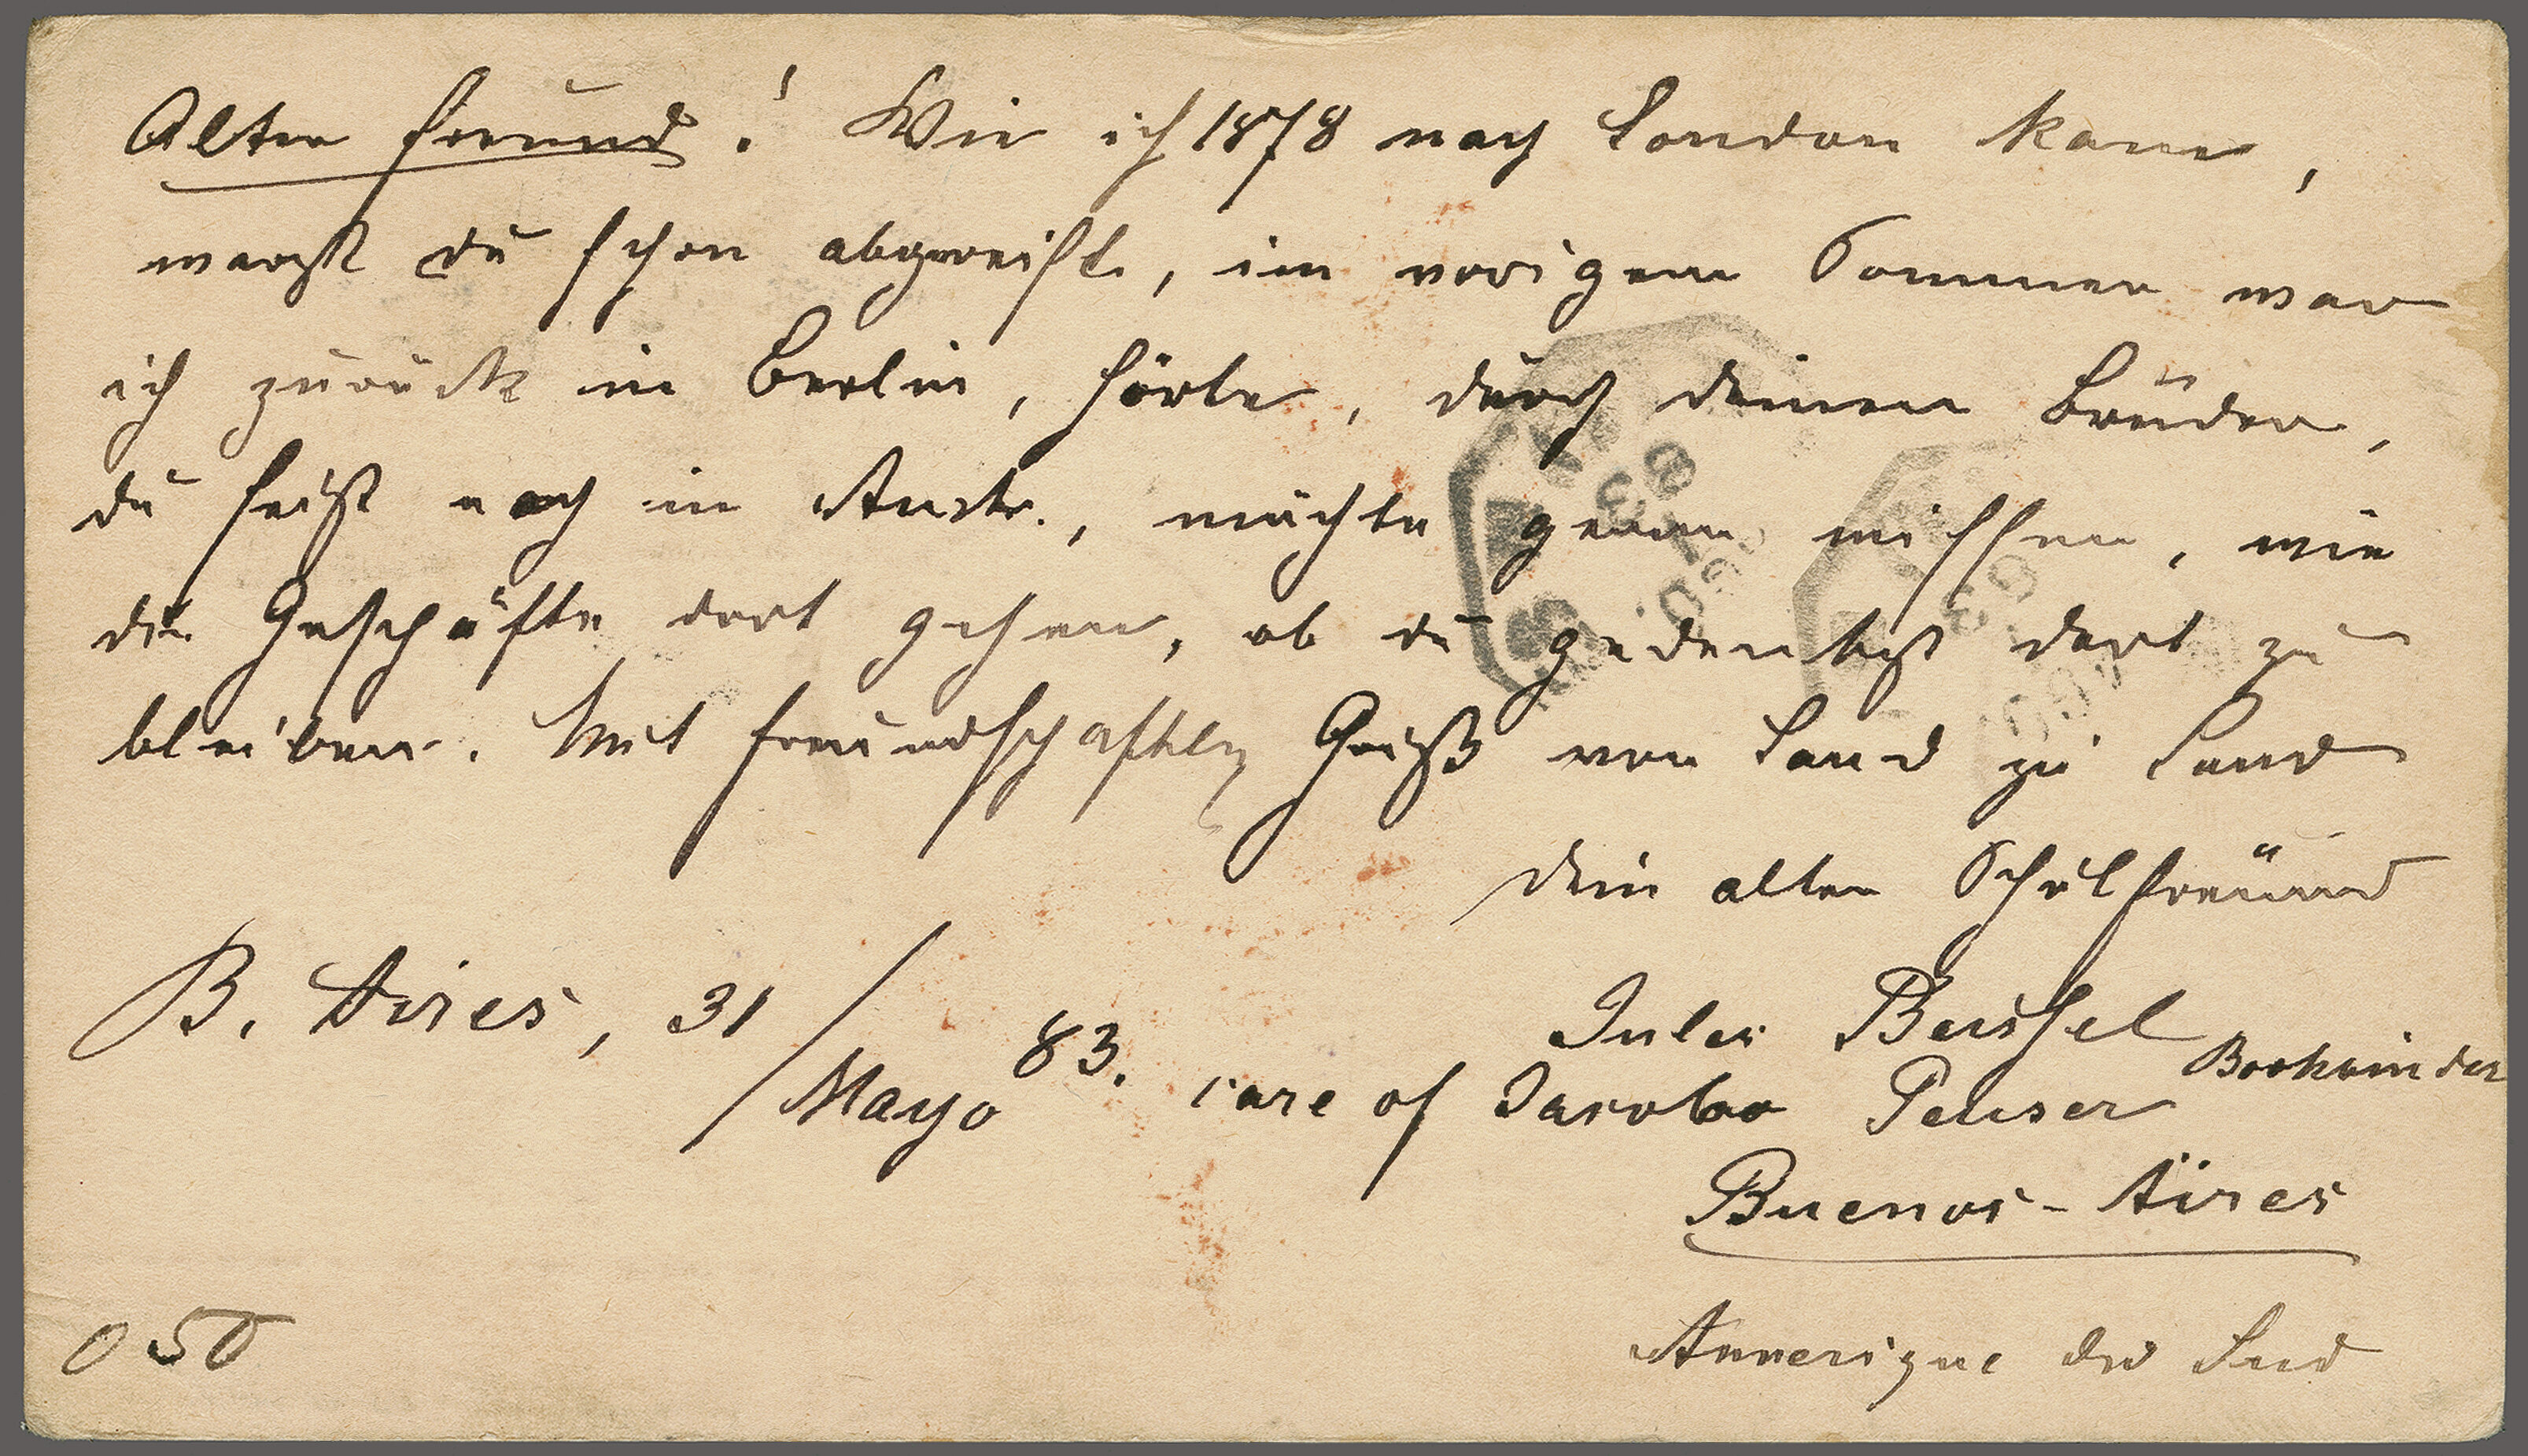 Alter Freund! Wie ich 1878 nach London kam,
warst du schon abgereist, im vorigem Sommer war
ich zurück in Berlin, hörte, durch deinen Bruder,
du seist noch in Austr., möchte gerne wissen, wie
die Geschäfte dort gehen, ob du gedenkst dort zu
bleiben. Mit freundschaftl. Gruß von Land zu Land
dein alter Schulfreund
B. Aires, 31/Mayo 83.
Jules Beissel
care of Jacobo Peuser Bookbinder
Buenos-Aires
Amerique du Sud
050